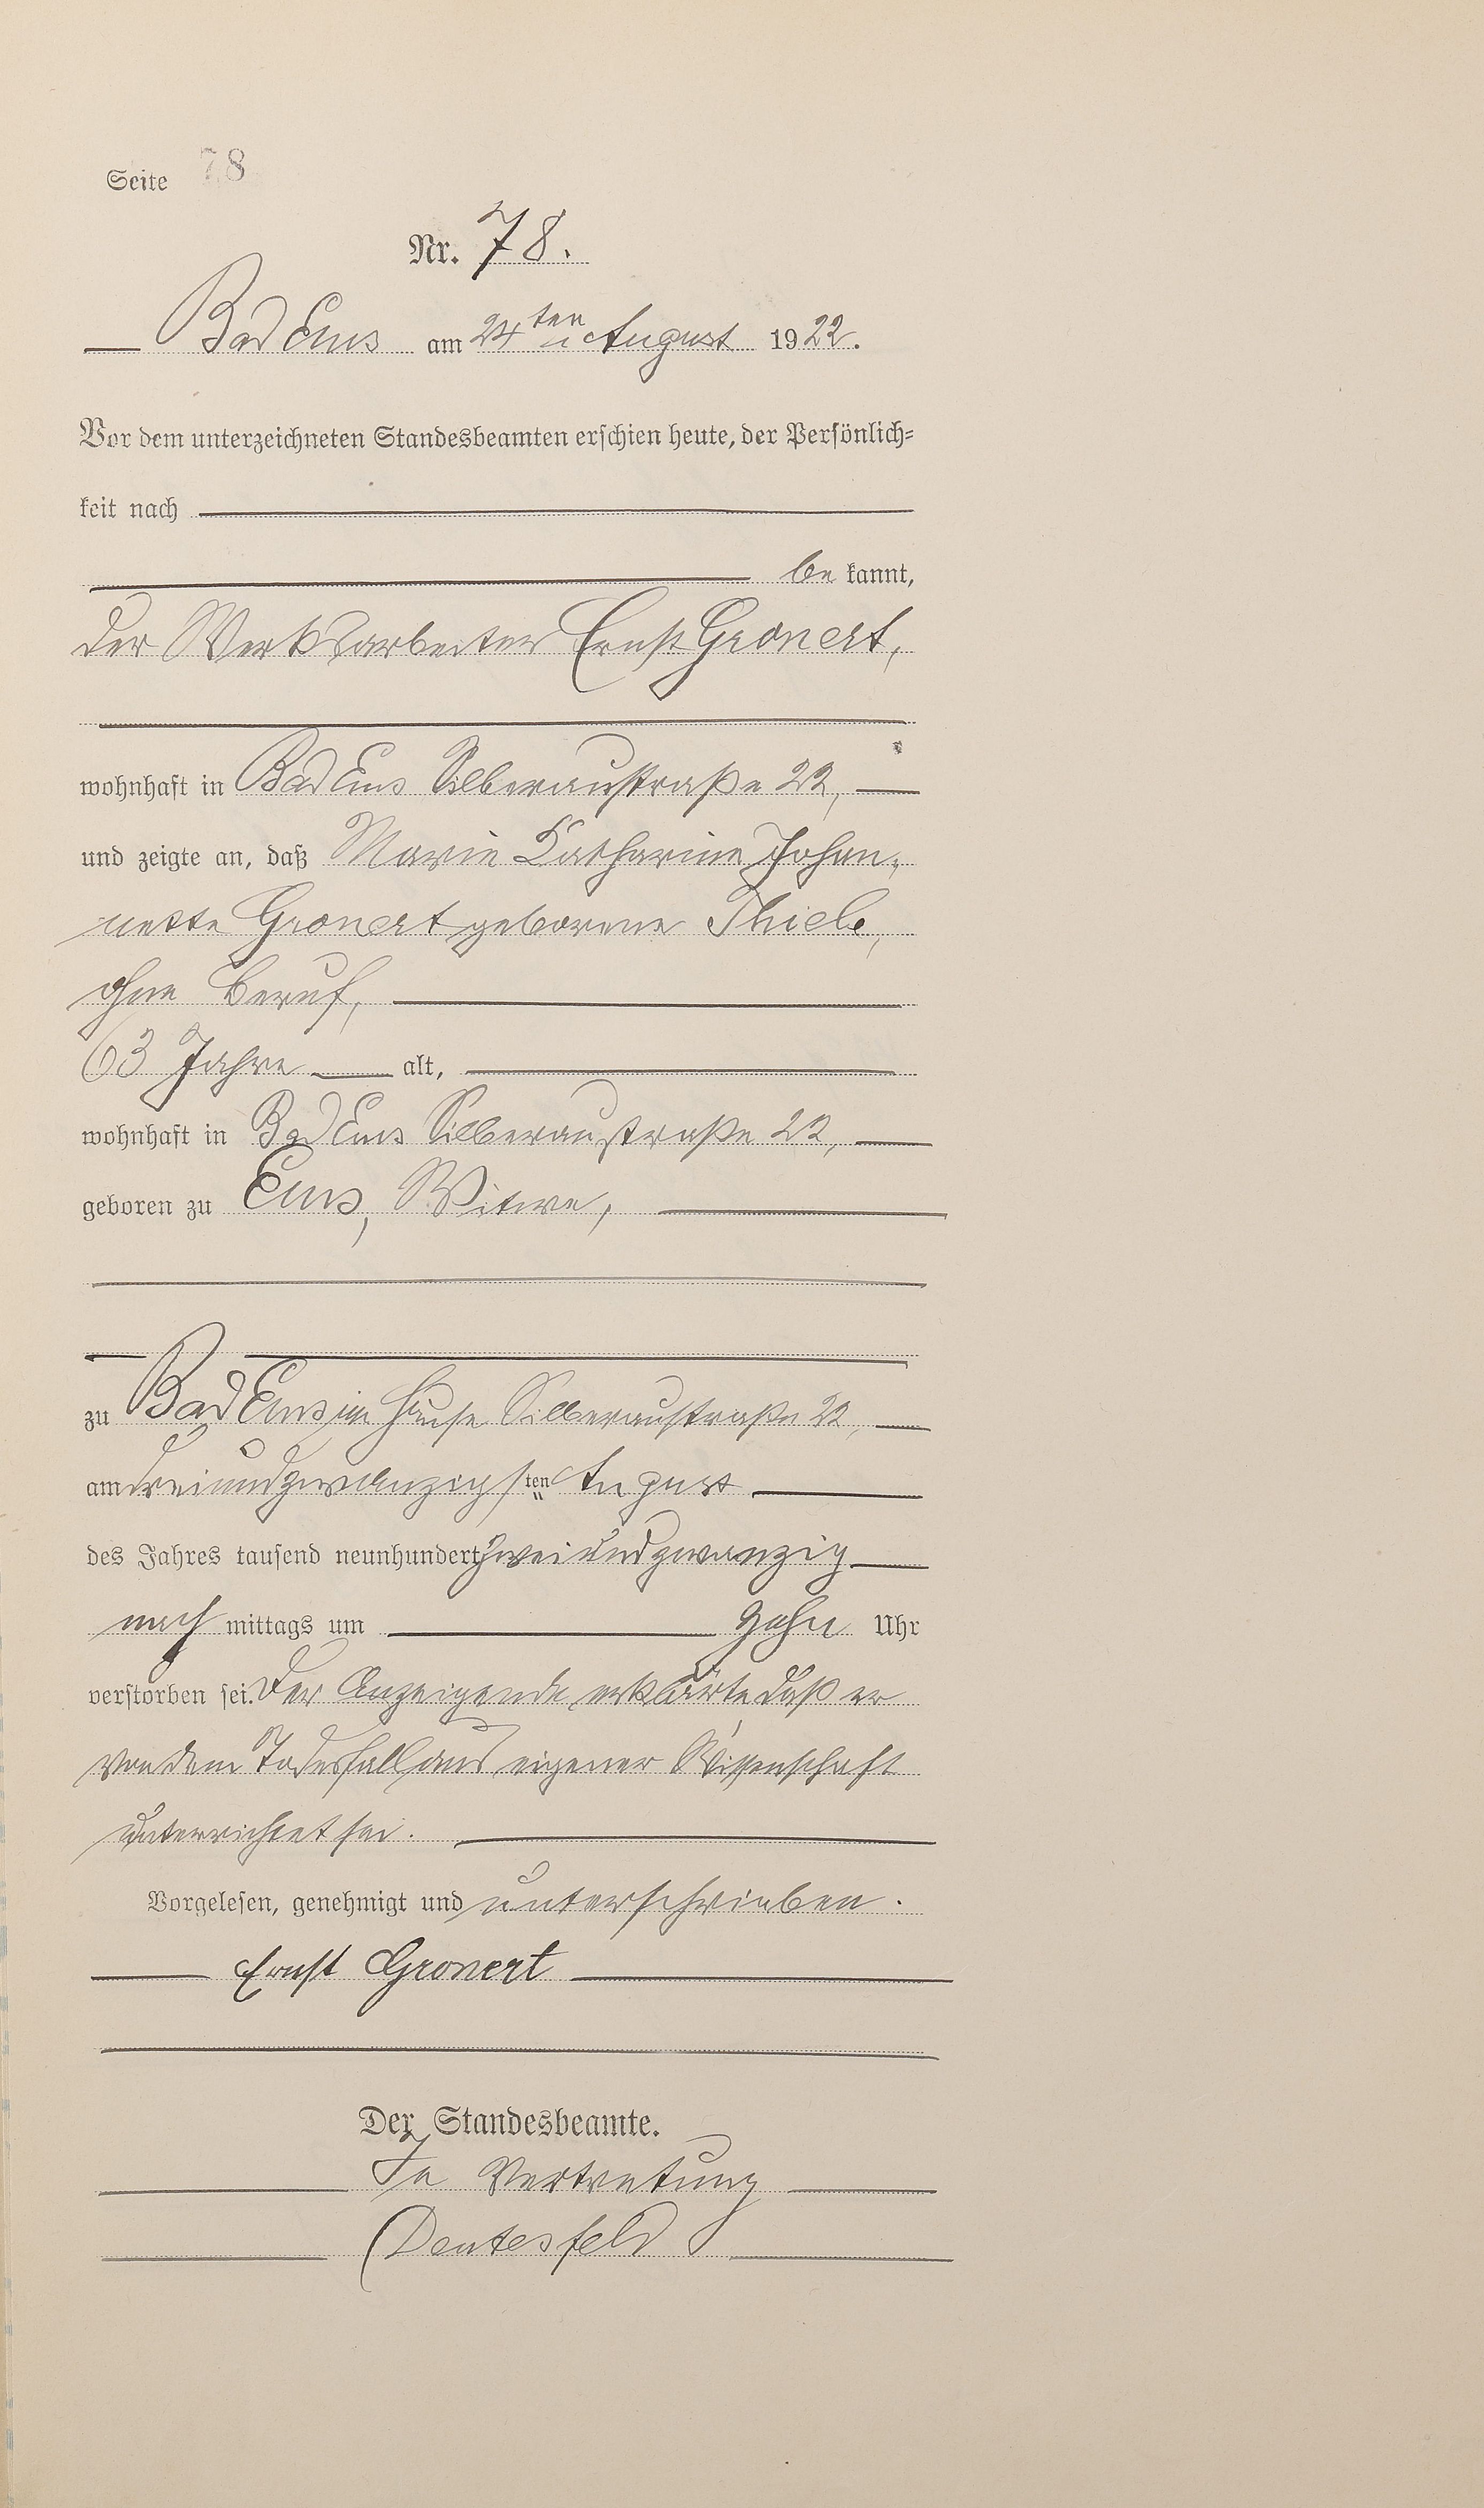 Seite 78
Nr. 78.
Bad Ems am 24ten August 1922.
Vor dem unterzeichneten Standesbeamten erschien heute, der Persönlich=
keit nach
be kannt,
der Werksarbeiter Ernst Gronert,
wohnhaft in Bad Ems Silberaustraße 22,
und zeigte an, daß Marie Katharine Johan=
nette Gronert geborene Thiele,
ohne Beruf,
63 Jahre alt,
wohnhaft in Bad Ems Silberaustraße 22,
geboren zu Ems, Witwe,
zu Bad Ems im Hause Silberaustraße 22,
am dreiundzwanzigsten August
des Jahres tausend neunhundert zweiundzwanzig
nach mittags um zehn Uhr
verstorben sei. Der Anzeigende erklärte daß er
von dem Todesfall aus eigener Wissenschaft
unterrichtet sei.
Vorgelesen, genehmigt und unterschrieben.
Ernst Gronert
Der Standesbeamte.
In Vertretung
Deutesfeld